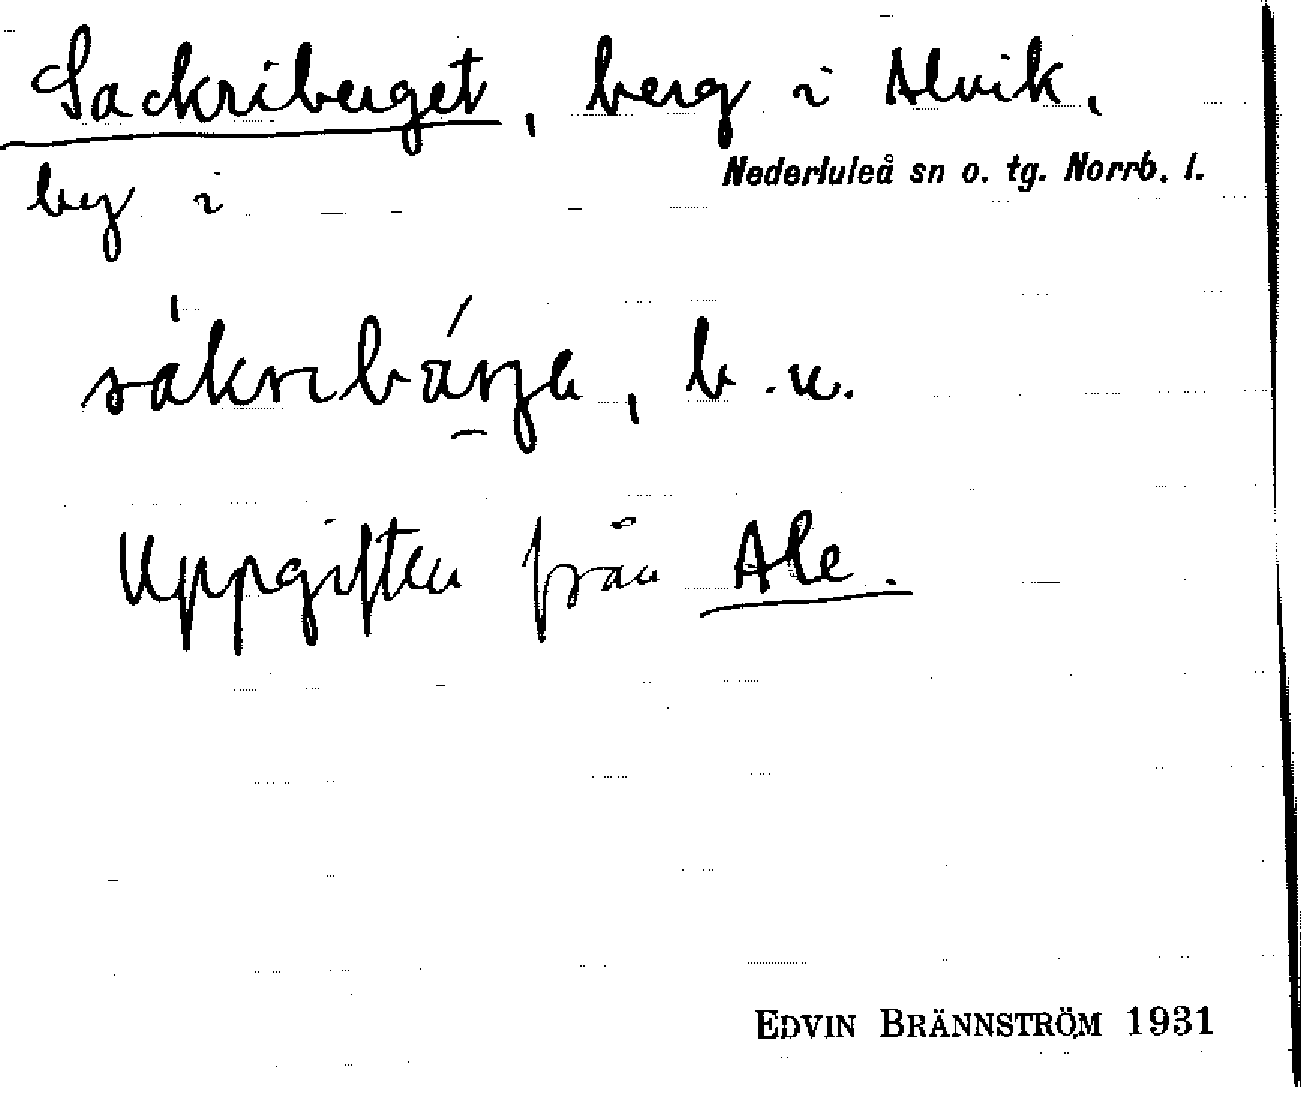 Sackriberget, berg i Alvik,
by i Nederluleå sn o. tg. Norrb. l.
sàkribárje, b. u.
Uppgiften från Ale.
EDVIN BRÄNNSTRÖM 1931